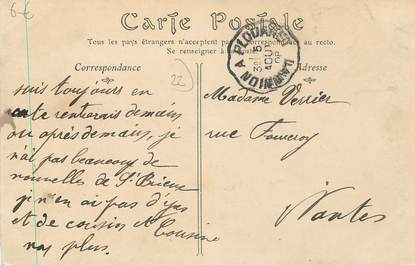 6€
Carte Postale
Tous les pays étrangers n'acceptent pas la correspondance au recto.
Se renseigner à
Correspondance
Adresse
PLOUARET A LANNION
22
suis toujours en
rentrerais demain,
ou après demain, je
n'ai pas beaucoup de
nouvelles de St Brieuc
je n'en ai pas d'
et de cousin et Cousine
non plus.
Madame Verrier
rue
Nantes